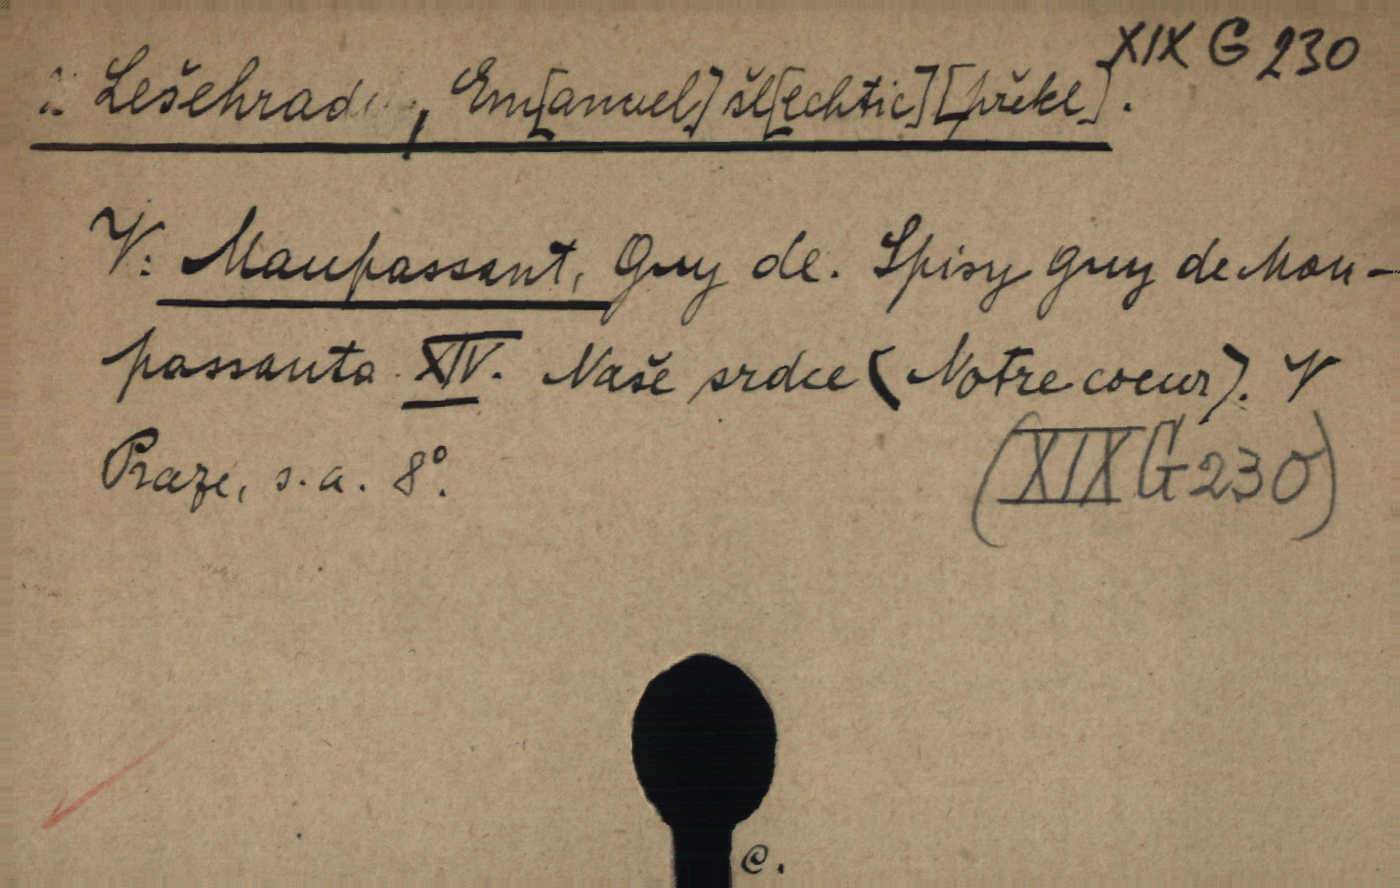 XIX G 230
Lešehrad, Em[anuel] šl[echtic] [překl].
V: Maupassant, Guy de. Spisy Guy de Mau-
passanta XIV. Naše srdce (Notre coeur). V
Praze, s. a. 8°.
(XIX G 230)
C.